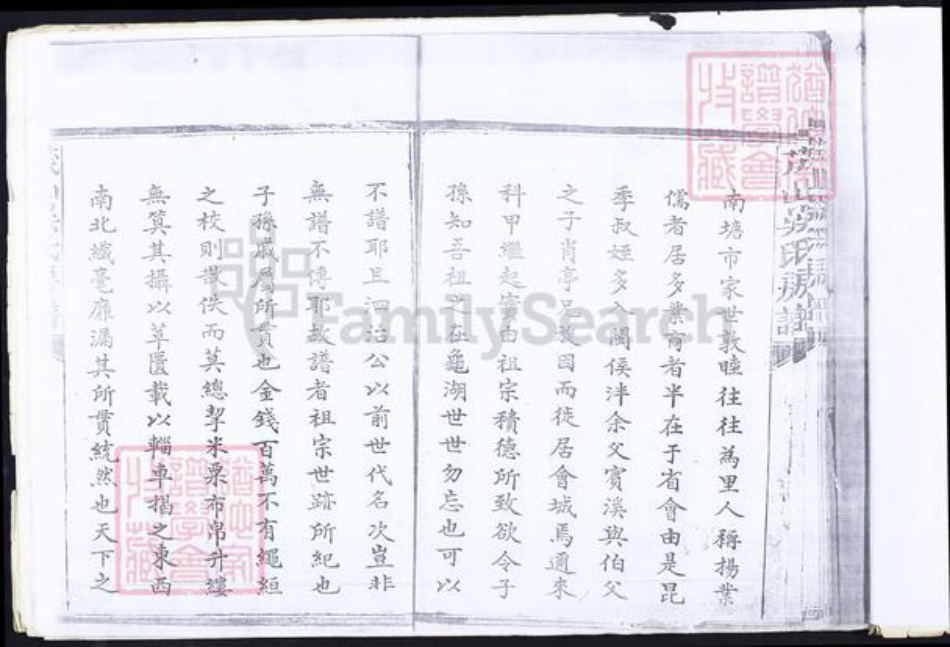 南塘市家世敦睦往往為里人稱揚業
儒者居多業商者半在于省會由是昆
季叔姪多入閩侯泮余父賓溪與伯父
之子肖亭兄旋因而徙居會城焉邇來
科甲繼起實由祖宗積德所致欲令子
孫知吾祖之在龜湖世世勿忘也可以
不譜耶且泗治公以前世代名次豈非
無譜不傳耶故譜者祖宗世跡所紀也
子孫戚屬所貫也金錢百萬不有繩絙
之校則散佚而莫總挈米粟布帛升縷
無算其攝以草匱載以輜車揭之東西
南北纖毫靡漏其所貫統然也天下之
吳氏房譜
譜學會
收藏
譜學會
收藏
FamilySearch